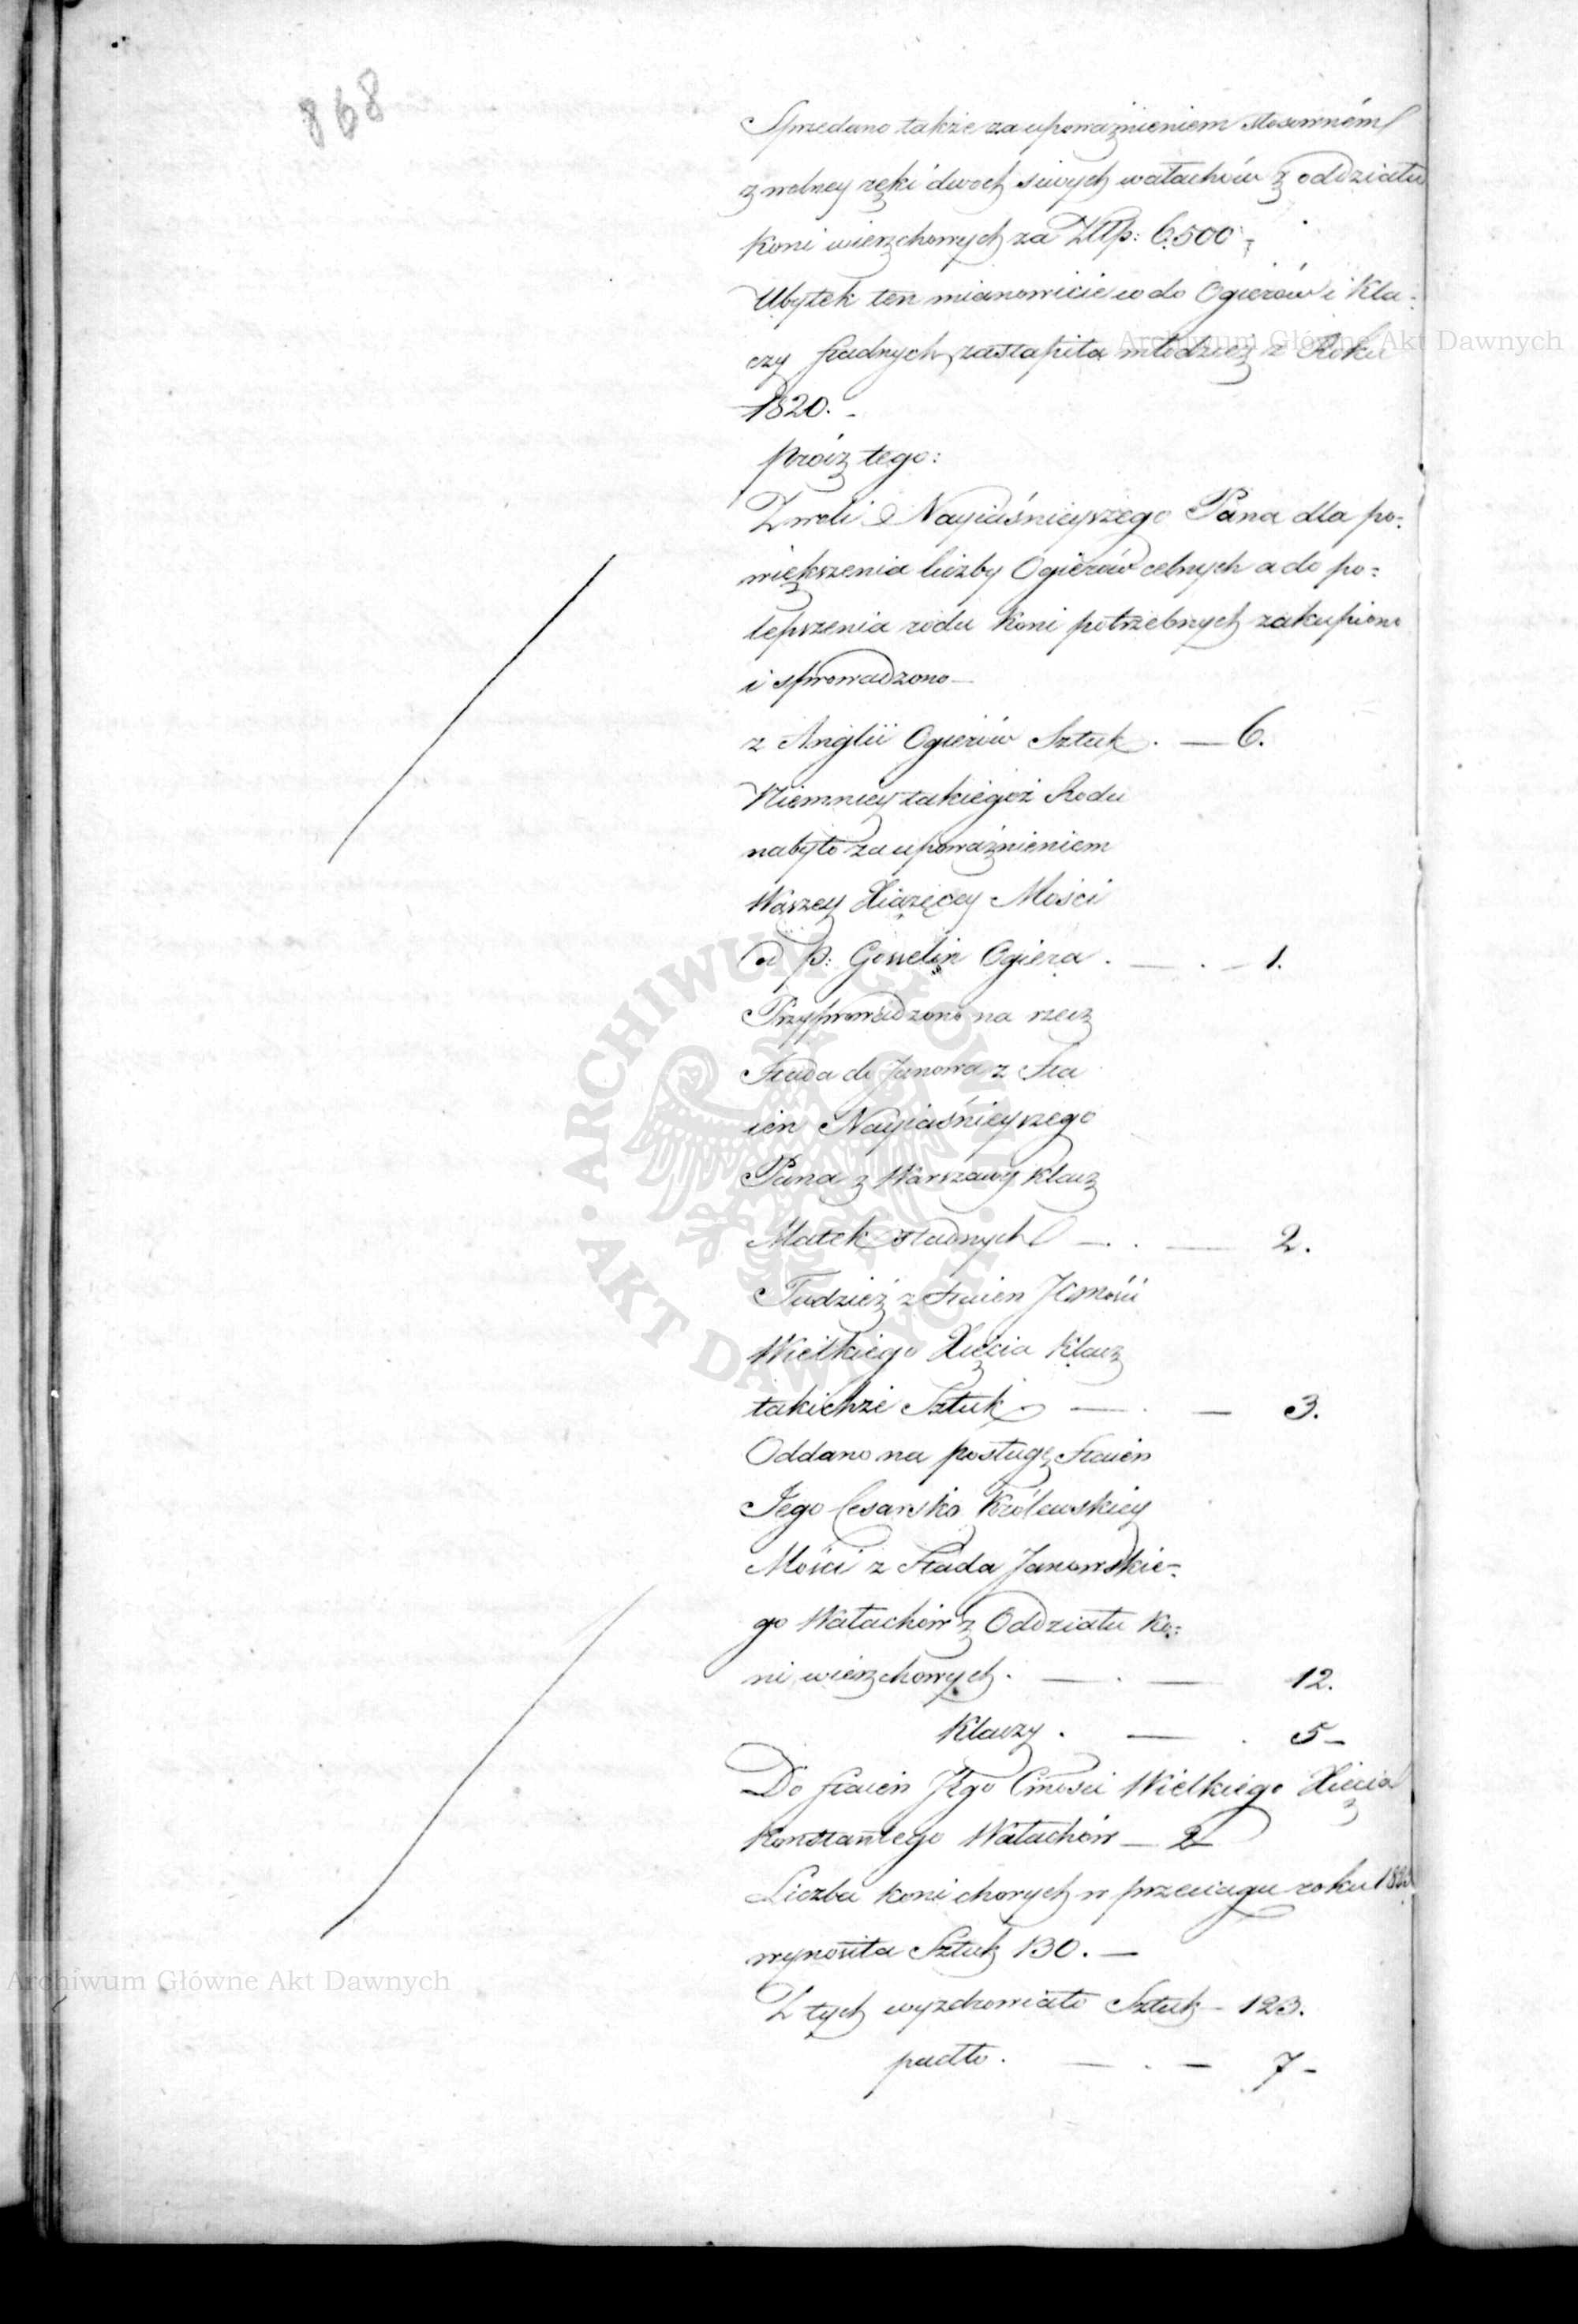 868
Sprzedano także za upoważnieniem stosownem
z wolney ręki dwoch siwych wałachów z oddziału
koni wierzchowych za Złłp: 6,500.
Ubytek ten mianowicie co do Ogierów i Kla-
czy stadnych zastąpiła młodzież z Roku
1820. -
prócz tego:
Z woli Nayiaśnieyszego Pana dla po-
większenia liczby Ogierów celnych a do po-
lepszenia rodu koni potrzebnych zakupiono
i sprowadzono —
z Anglii Ogierów Sztuk. — 6.
Niemniey takiegoż Rodu
nabyto za upoważnieniem
Waszey Xiążęcey Mości
od p: Gosselin Ogiera. — . — 1.
Przyprowadzono na rzecz
Stada do Janowa z Sta
ien Nayiaśnieyszego
Pana z Warszawy Klacz
Matek stadnych — . — 2.
Tudzież z staien JCMości
Wielkiego Xięcia Klacz
takichże Sztuk — . — 3.
Oddano na posługę Staien
Jego Cesarsko Królewskiey
Mości z Stada Janowskie-
go Wałachów z Oddziału Ko-
ni wierzchowych. — . — 12.
Klaczy. — . 5 -
Do staien JEgo Cmości Wielkiego Xięcia
Konstantego Wałachów — 2
Liczba koni chorych w przeciągu roku
wynosiła Sztuk 130. —
Z tych wyzdrowiało Sztuk - 123.
padło. — . — 7 -
Archiwum Główne Akt Dawnych
Archiwum Główne Akt Dawnych
ARCHIWUM GŁÓWNE • AKT DAWNYCH •